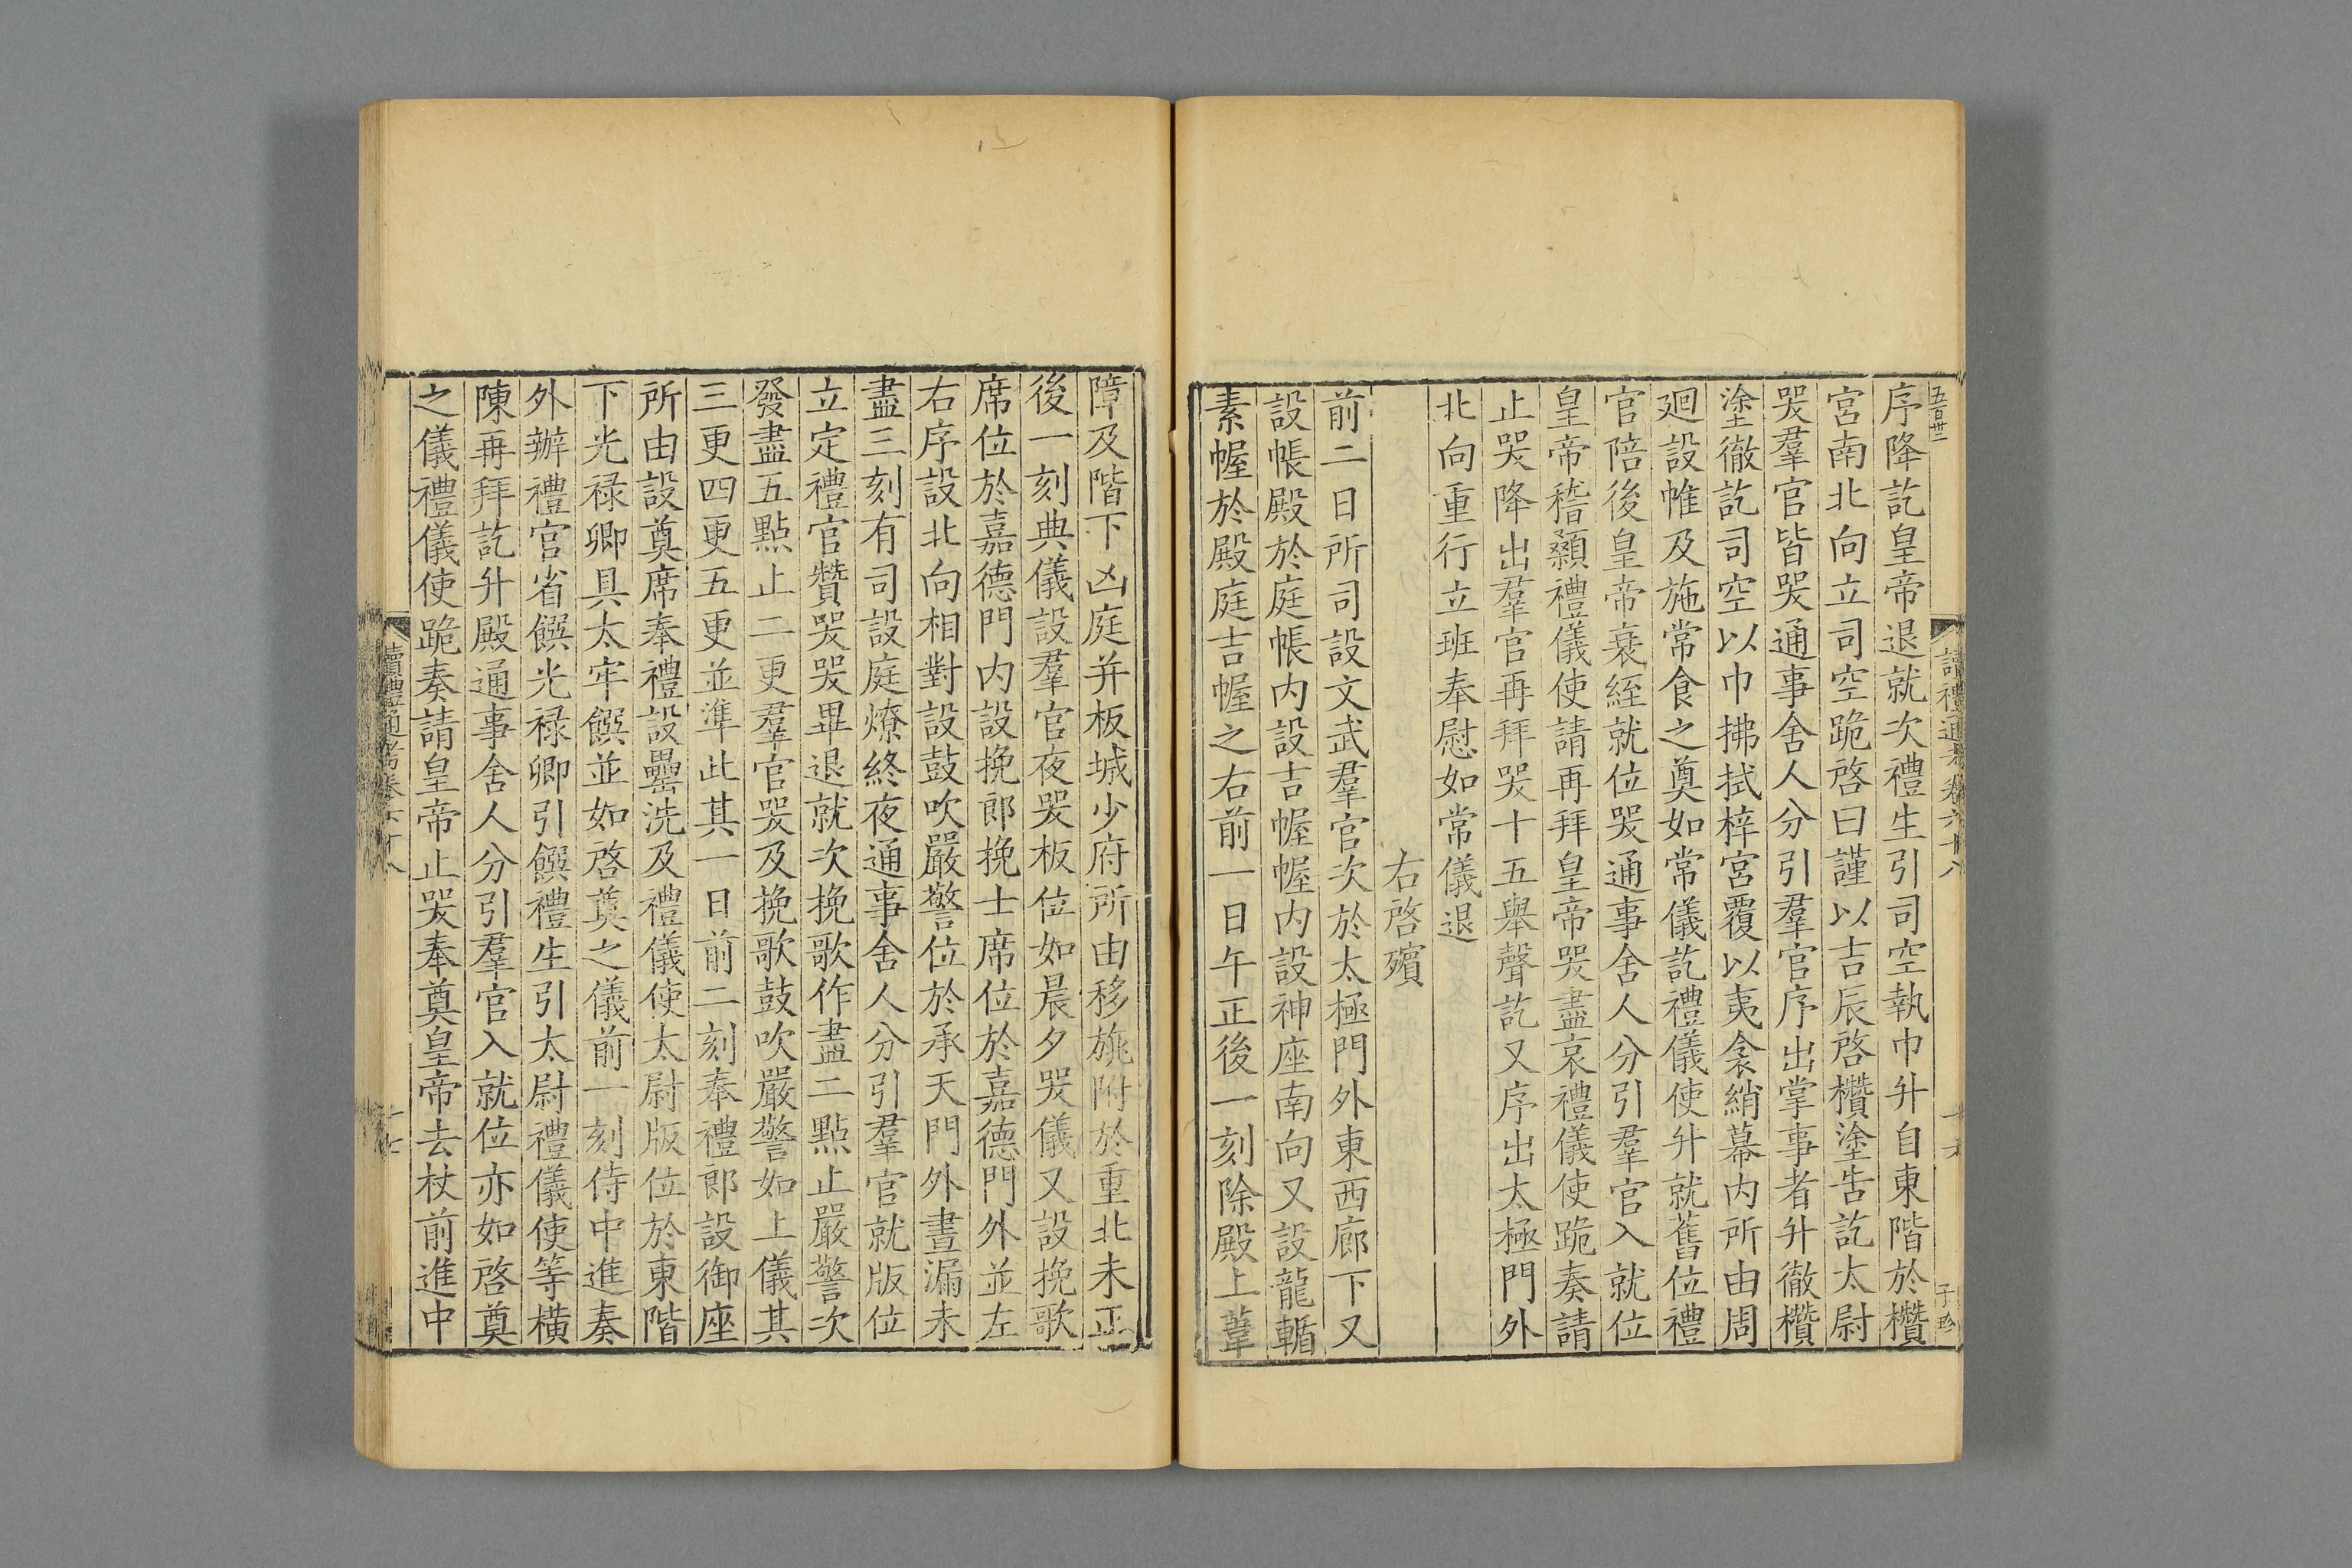 五百卅二
讀禮通考卷六十八
十六
子珍
序降訖皇帝退就次禮生引司空執巾升自東階於欑
宮南北向立司空跪啓曰謹以吉辰啓欑塗告訖太尉
哭羣官皆哭通事舍人分引羣官序出掌事者升徹欑
塗徹訖司空以巾拂拭梓宮覆以夷衾綃幕内所由周
廻設帷及施常食之奠如常儀訖禮儀使升就舊位禮
官陪後皇帝衰絰就位哭通事舍人分引羣官入就位
皇帝稽顙禮儀使請再拜皇帝哭盡哀禮儀使跪奏請
止哭降出羣官再拜哭十五舉聲訖又序出太極門外
北向重行立班奉慰如常儀退
右啓殯
前二日所司設文武羣官次於太極門外東西廊下又
設帳殿於庭帳内設吉幄幄内設神座南向又設龍輴
素幄於殿庭吉幄之右前一日午正後一刻除殿上葦
障及階下凶庭并板城少府所由移旐附於重北未正
後一刻典儀設羣官夜哭板位如晨夕哭儀又設挽歌
席位於嘉德門内設挽郎挽士席位於嘉德門外並左
右序設北向相對設鼓吹嚴警位於承天門外晝漏未
盡三刻有司設庭燎終夜通事舍人分引羣官就版位
立定禮官贊哭哭畢退就次挽歌作盡二點止嚴警次
發盡五點止二更羣官哭及挽歌鼓吹嚴警如上儀其
三更四更五更並準此其一日前二刻奉禮郎設御座
所由設奠席奉禮設罍洗及禮儀使太尉版位於東階
下光禄卿具太牢饌並如啓奠之儀前一刻侍中進奏
外辦禮官省饌光禄卿引饌禮生引太尉禮儀使等横
陳再拜訖升殿通事舍人分引羣官入就位亦如啓奠
之儀禮儀使跪奏請皇帝止哭奉奠皇帝去杖前進中
讀禮通考卷六十八
十七